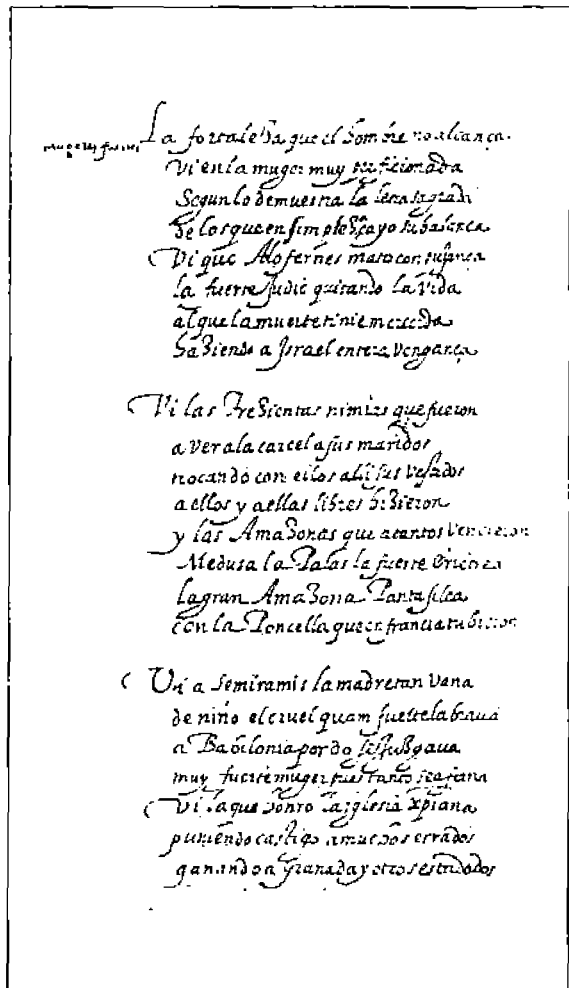 mugeres fuertes
La fortaleza que el hombre no alcança
Vi en la muger muy perficionada
Segun lo demuestra la letra sagrada
de los que en simple
Vi que Alofernes mato con su lança
la fuerte Judic quitando la Vida
al que la muerte tinie merecida
haziendo a Israel entera Vengança
Vi las Trezientas nimias que fueron
a ver a la carcel a sus maridos
trocando con ellos alli sus Vestidos
a ellos y a ellas libres hizieron
y las Amazonas que a tantos Vencieron
Medusa la Palas la fuerte
la gran Amazona Pantasilea
con la Poncella que en francia tubieron
Vi a Semiramis la madre tan Vana
de nino el cruel quam fuerte labraua
a Babilonia por do
muy fuerte muger pues tanto
Vi la que honro la iglesia xpiana
puniendo castigo a muchos errados
ganando a Granada y otros estados